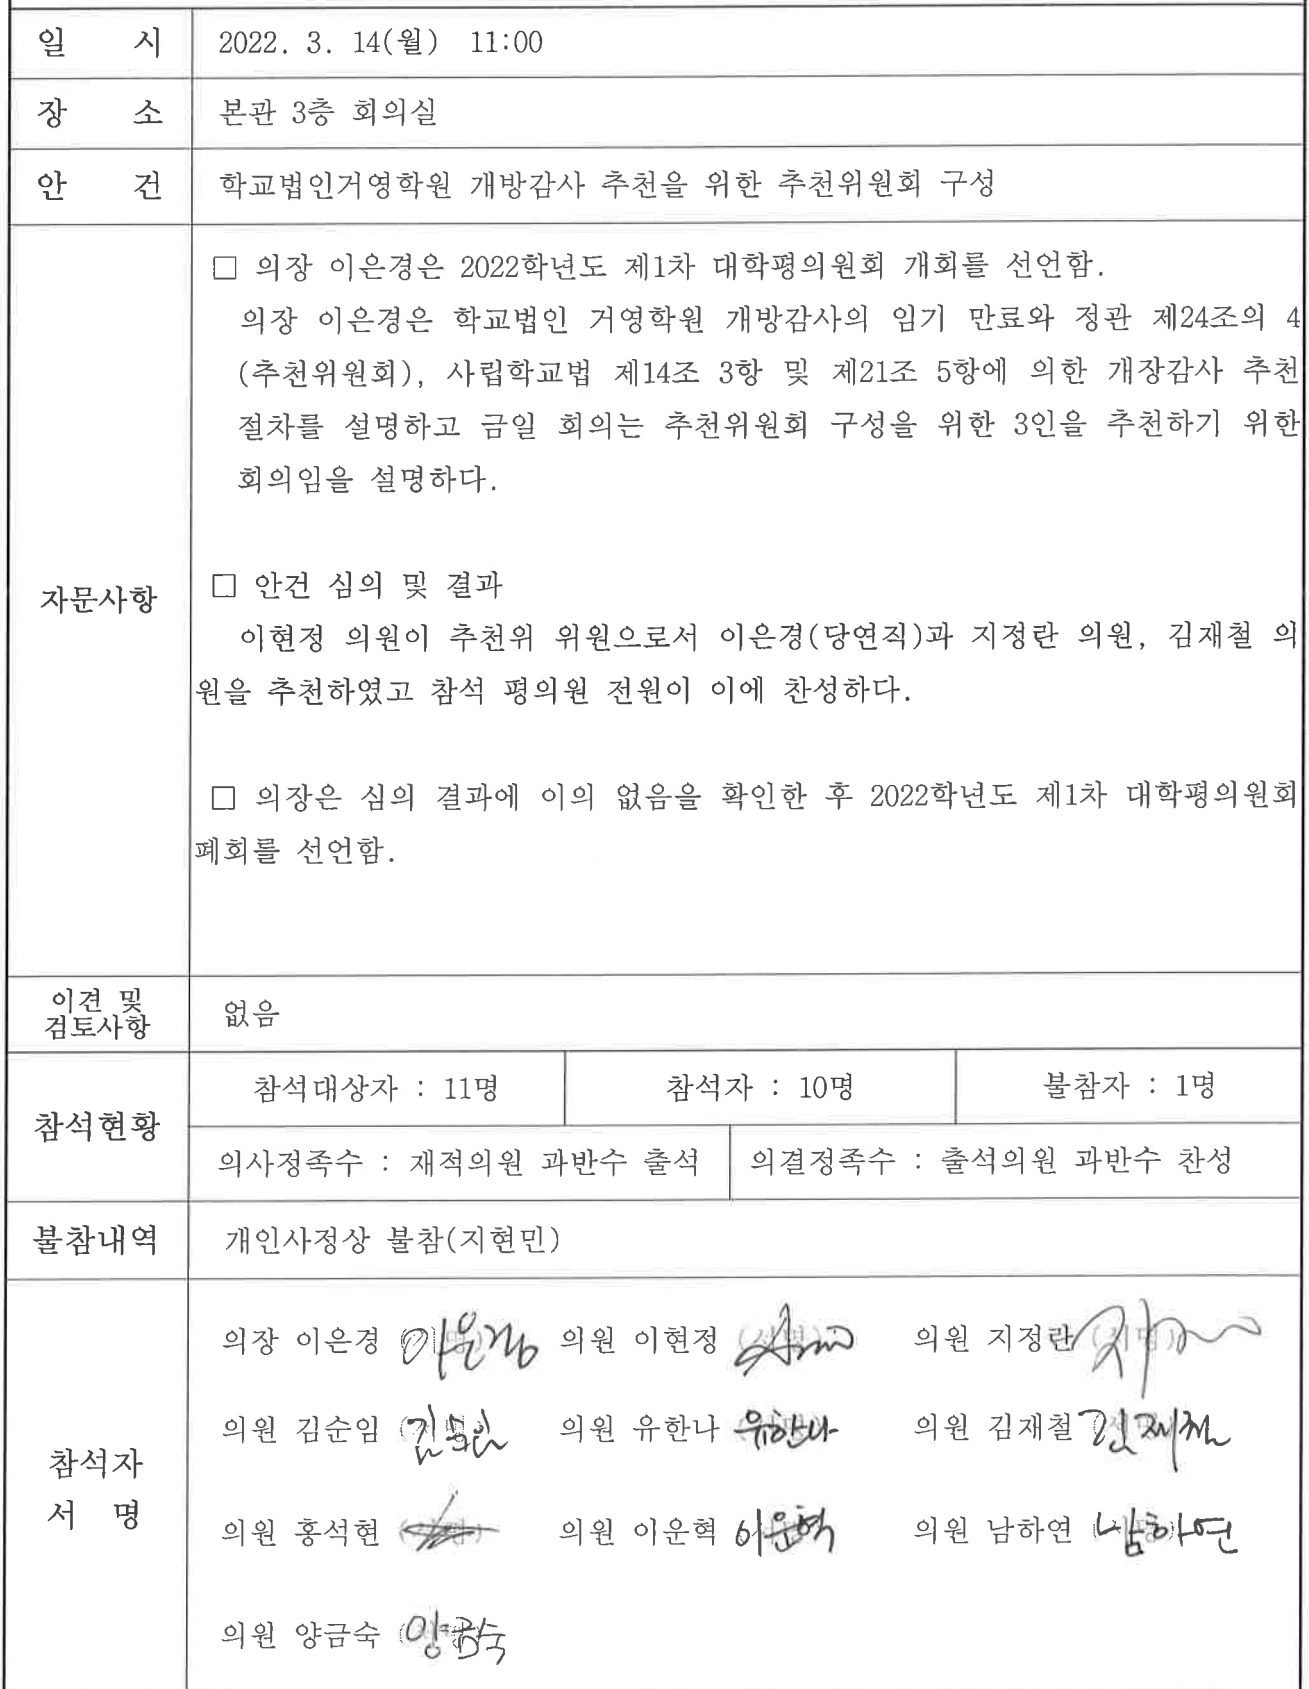 일 시 2022. 3. 14(월) 11:00
장 소 본관 3층 회의실
안 건 학교법인거영학원 개방감사 추천을 위한 추천위원회 구성
자문사항
□ 의장 이은경은 2022학년도 제1차 대학평의원회 개회를 선언함.
의장 이은경은 학교법인 거영학원 개방감사의 임기 만료와 정관 제24조의 4
(추천위원회), 사립학교법 제14조 3항 및 제21조 5항에 의한 개장감사 추천
절차를 설명하고 금일 회의는 추천위원회 구성을 위한 3인을 추천하기 위한
회의임을 설명하다.
□ 안건 심의 및 결과
이현정 의원이 추천위 위원으로서 이은경(당연직)과 지정란 의원, 김재철 의
원을 추천하였고 참석 평의원 전원이 이에 찬성하다.
□ 의장은 심의 결과에 이의 없음을 확인한 후 2022학년도 제1차 대학평의원회
폐회를 선언함.
이견 및
검토사항
없음
참석현황
참석대상자 : 11명 참석자 : 10명 불참자 : 1명
의사정족수 : 재적의원 과반수 출석 의결정족수 : 출석의원 과반수 찬성
불참내역 개인사정상 불참(지현민)
참석자
서 명
의장 이은경 이은경 의원 이현정 의원 지정란
의원 김순임 김순임 의원 유한나 유한나 의원 김재철 김재철
의원 홍석현 의원 이운혁 이운혁 의원 남하연 남하연
의원 양금숙 양금숙